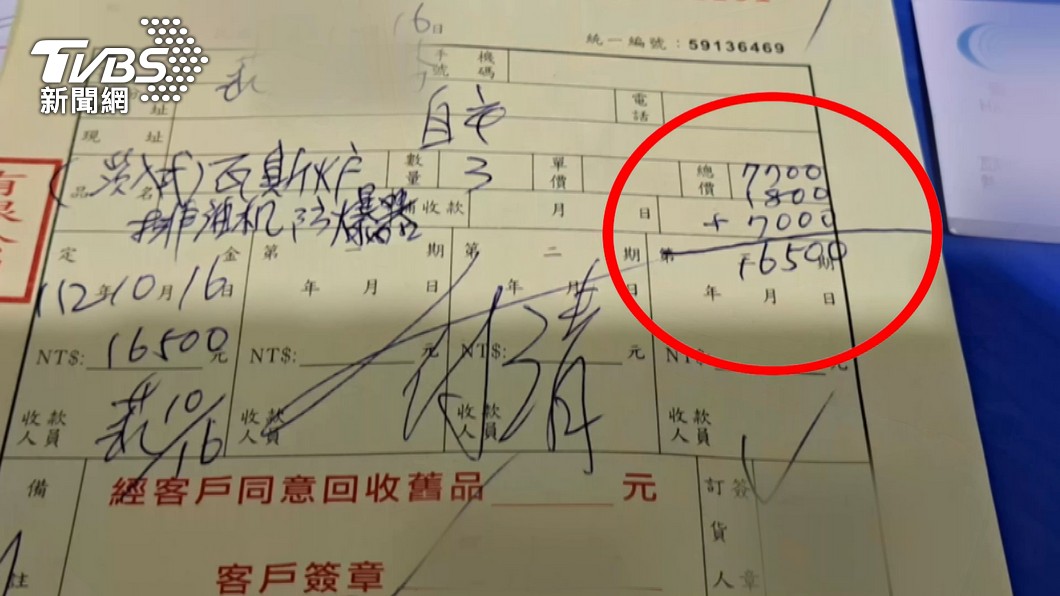 TVBS
新聞網
16日
統一編號：59136469
手機號碼
自立
電話
現址
(莢式)瓦斯炉
數量 3
單價
總價 7700
1800
品名
排油机 防爆器
收款 月 日
+ 7000
定金
第一期
第二期
第三期
16500
112年10月16日
年 月 日
年 月 日
年 月 日
NT$: 16500元
NT$: 元
NT$: 元
NT$: 元
付清
收款人員 10/16
收款人員
收款人員
收款人員
備註
經客戶同意回收舊品 元
訂貨人簽章
客戶簽章
有限公司